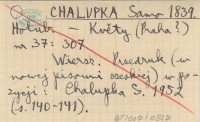 CHALUPKA Samo 1839.
Holub. – Květy (Praha?)
nr 37: 307
Wiersz. Przedruk (w
nowej pisowni czeskiej) w po-
zycji: Chalupka S. 1952
(s. 140-141).